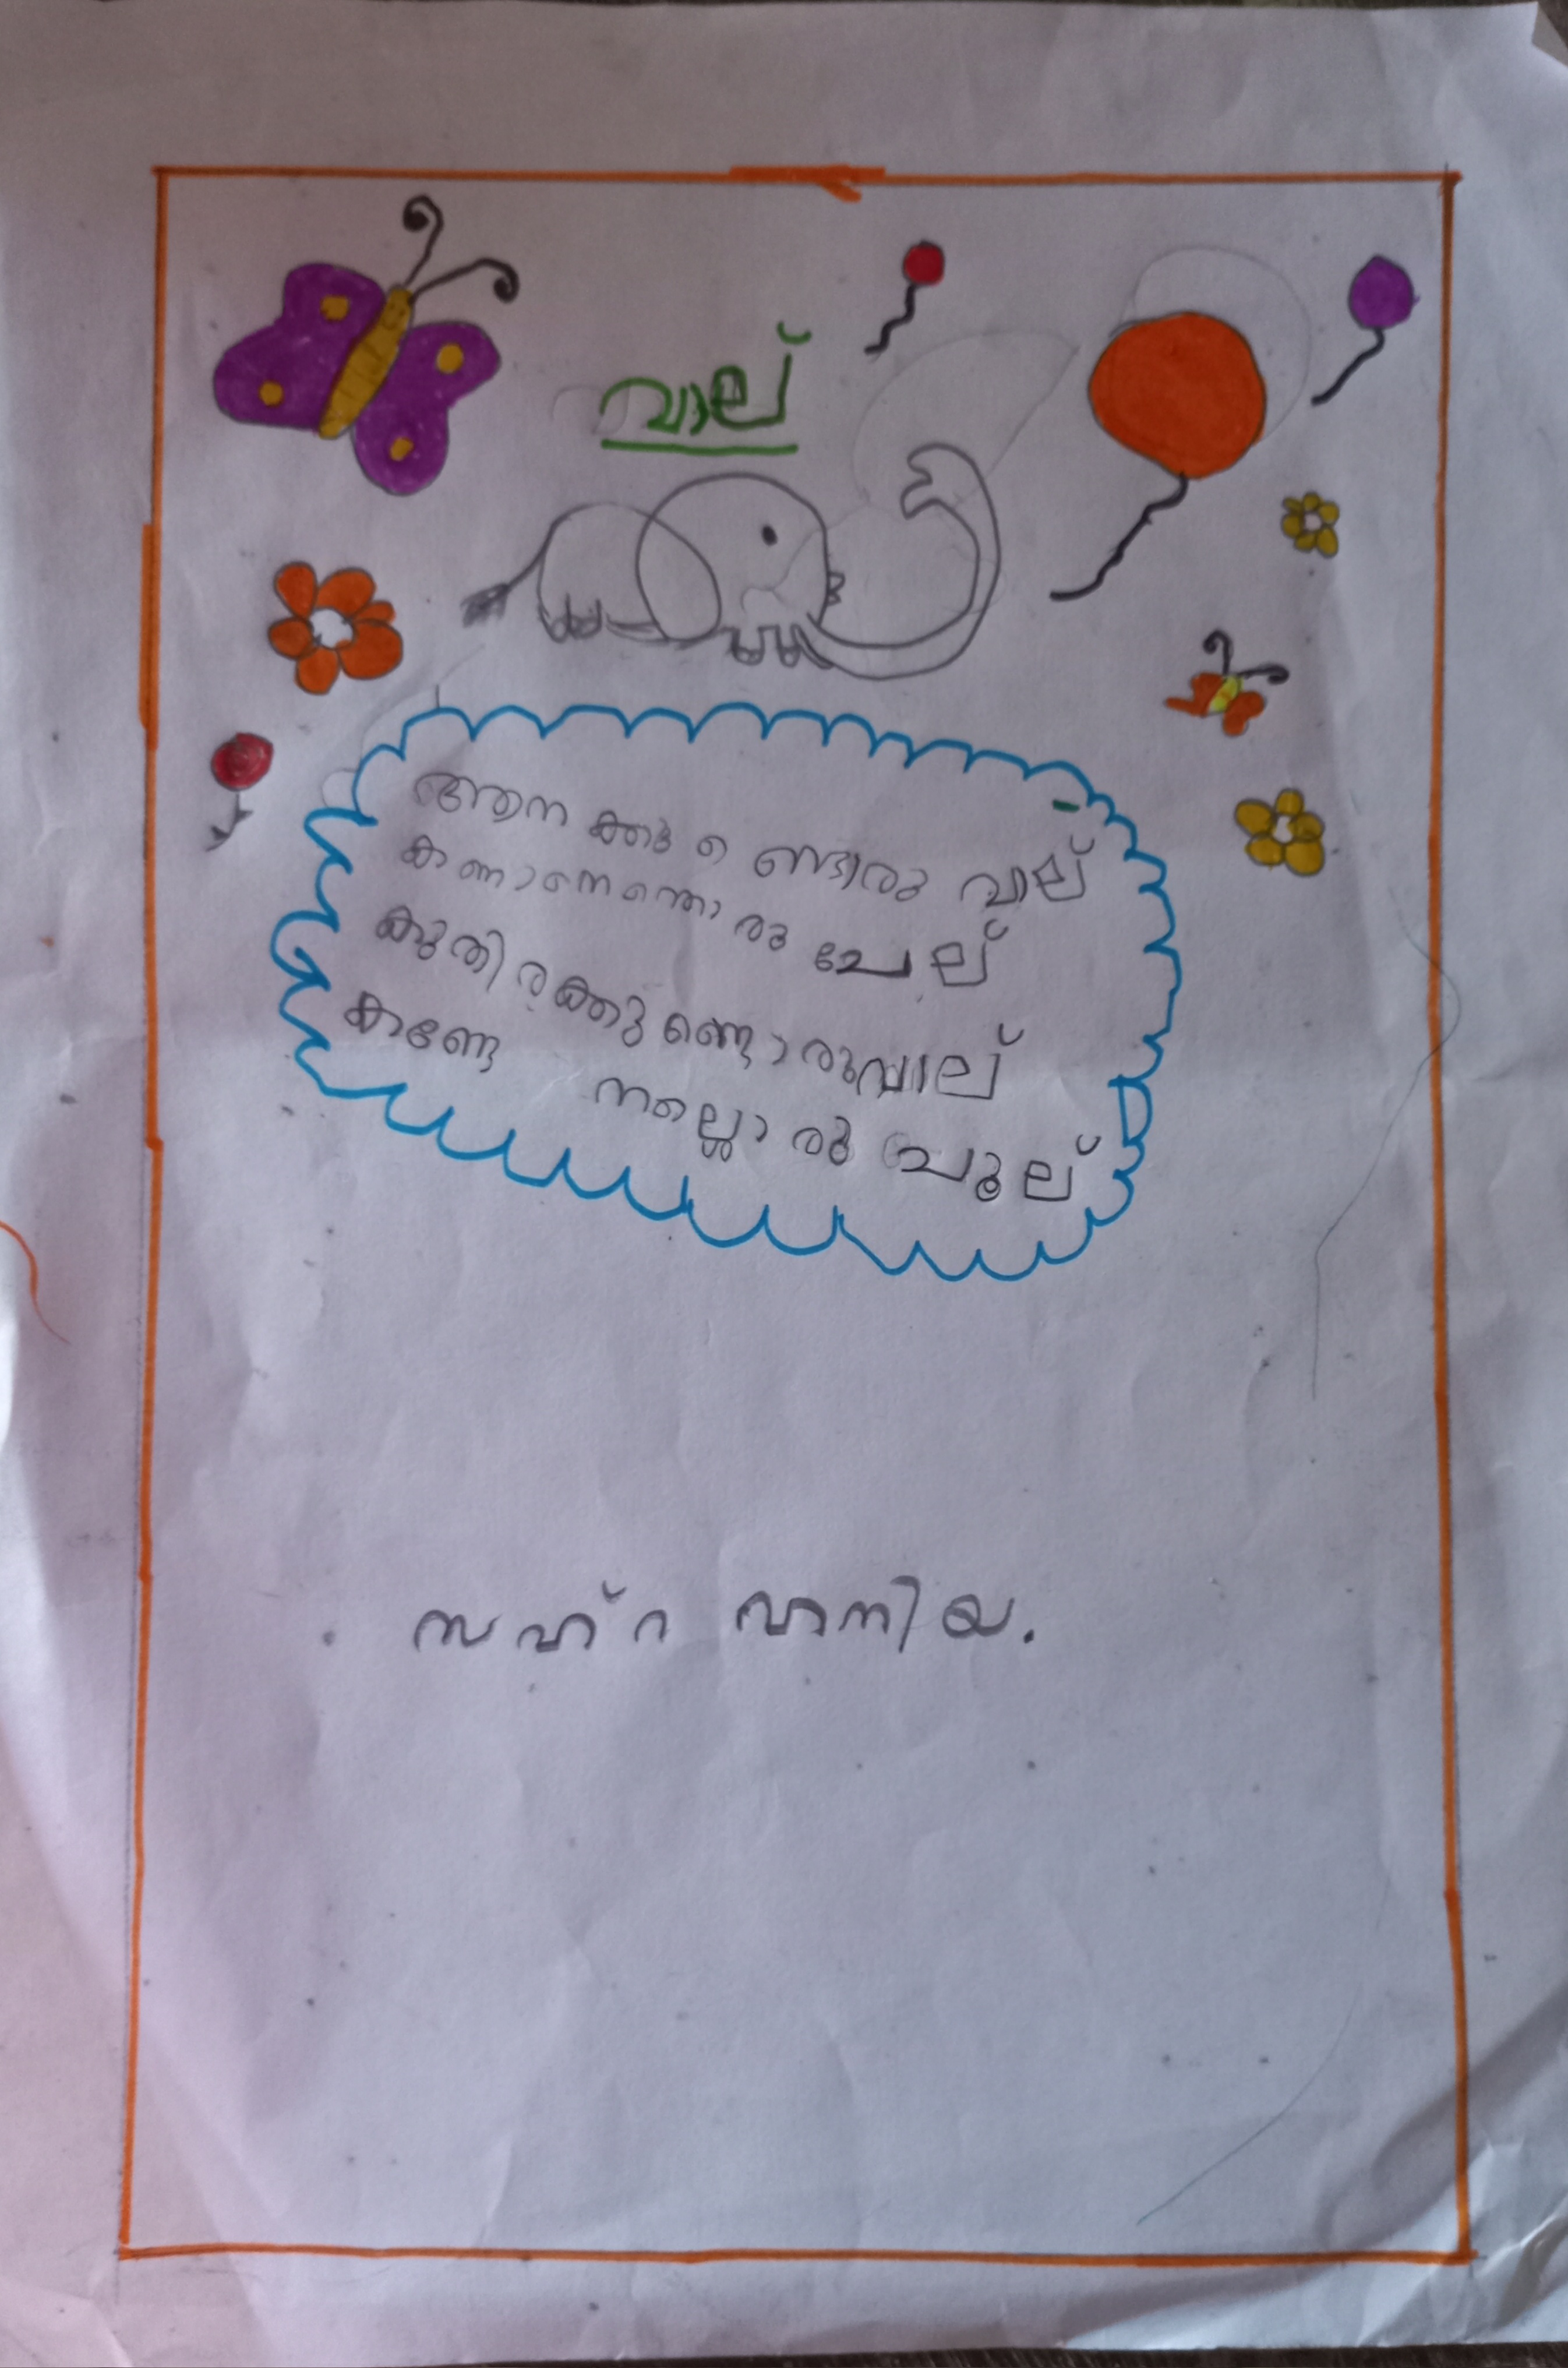 വാല്
ആനക്കു ണ്ടൊരു വാല്
കണാനെന്തൊരു ചേല്
കുതിരക്കുണ്ടൊരുവാല്
കണ്ടേ നല്ലൊരു പുല്
സഹ്റ വാനിയ.